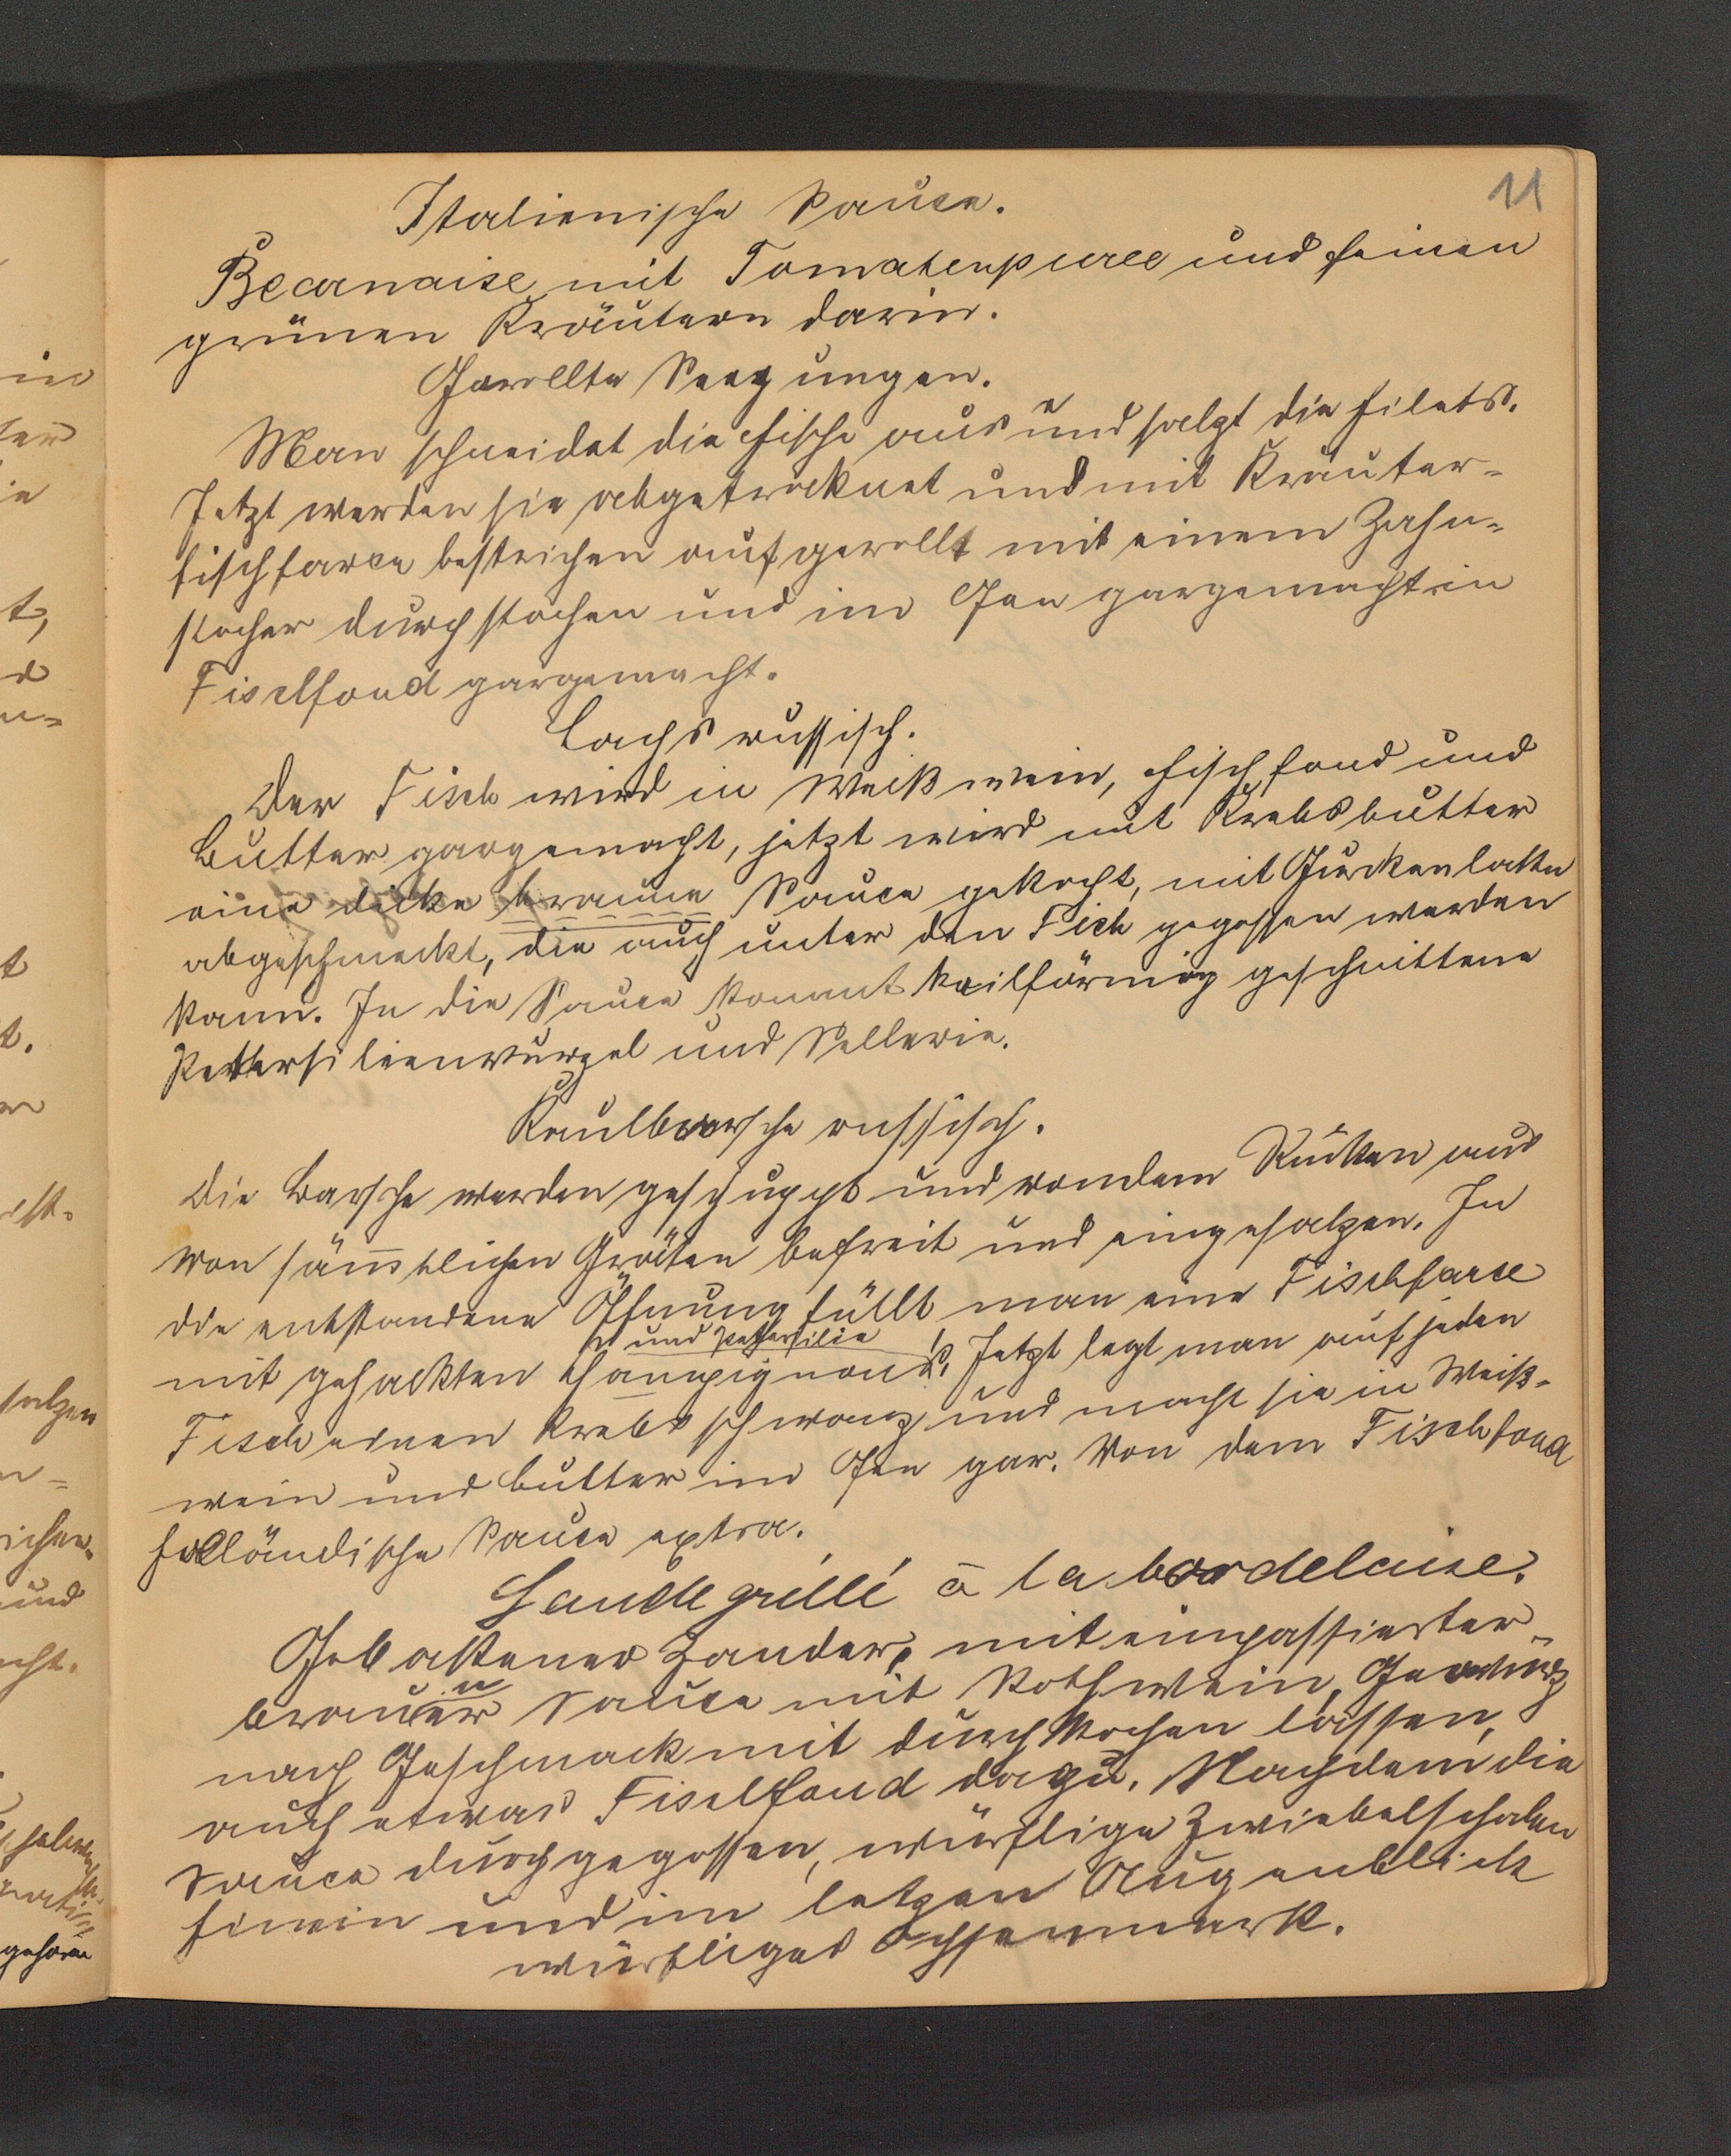 11
Italienische Sauce.
Bearnaise mit Tomatenpuree und feinen
grünen Kräutern darin.
Gerollte Seezungen.
Man schneidet die Fische aus und salzt die Filets.
Jetzt werden sie abgetrocknet und mit Kräuter-
fischfarce bestrichen aufgerollt mit einem Zahn-
stocher durchstochen und im Ofen gargemacht in
Fischfond gargemacht.
Lachs russisch.
Der Fisch wird in Weißwein, Fischfond und
Butter gargemacht, jetzt wird mit Krebsbutter
eine dicke braune Sauce gekocht, mit Gurkenlake
abgeschmeckt, die auch unter den Fich gegossen werden
kann. In die Sauce kommt keilförmig geschnittene
Pettersilienwurzel und Sellerie.
Kaulbarsche russisch.
Die Barsche werden geschuppt und von dem Rücken aus
von sämtlichen Gräten befreit und eingesalzen. In
die entstandene Öffnung füllt man eine Fischfarce
und Petersilie
mit gehackten Champignons. Jetzt legt man auf jeden
Fisch einen Krebsschwanz und macht sie in Weiß-
wein und Butter im Ofen gar. Von dem Fischfond
holländische Sauce extra.
Sandle grillé à la bordelaise.
Gebackener Zander, mit einpassierter
brauner Sauce mit Rothwein, Gewürz
nach Geschmack mit durchkochen lassen,
auch etwas Fischfond dazu. Nachdem die
Sauce durchgegossen, würflige Zwiebelschalen
hinein und im letzen Augenblick
würfliges Ochsenmark.